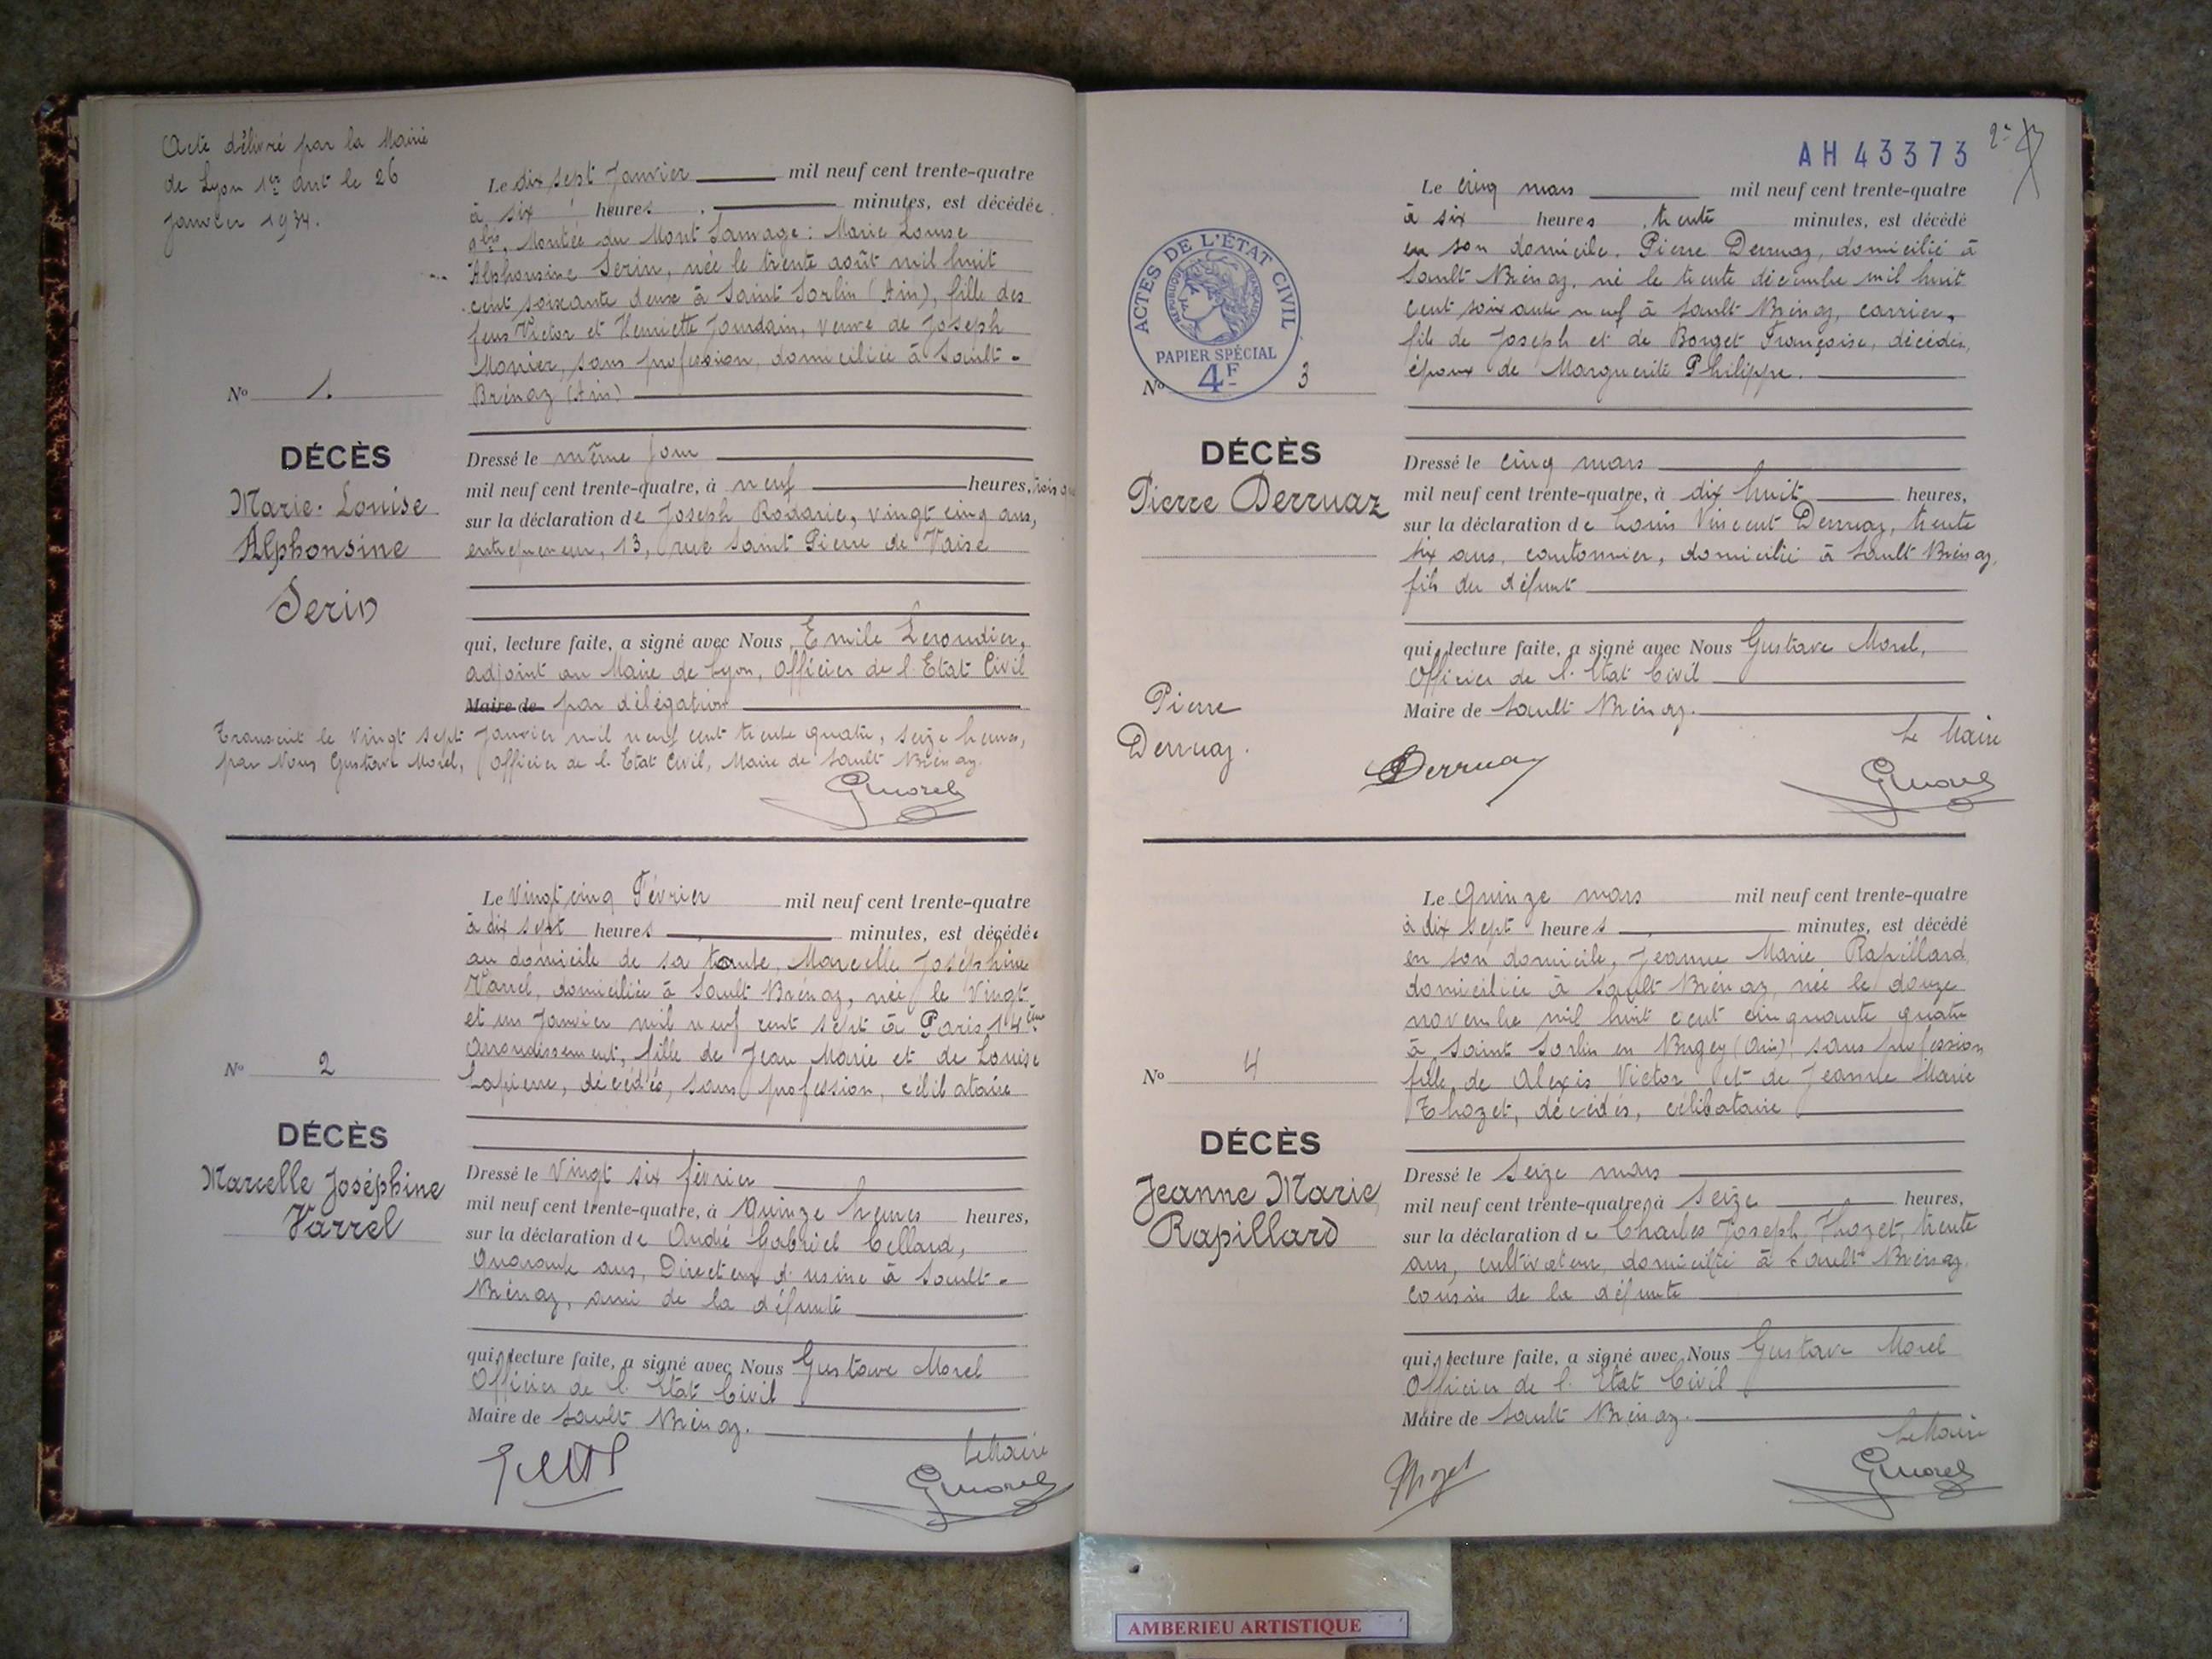 Acte délivré par la Mairie
de Lyon 1er art le 26
janvier 1934.
Le dix sept Janvier mil neuf cent trente-quatre
à six heures minutes, est décédée
Montée du Mont Sauvage : Marie Louise
Alphonsine Serin, née le trente août mil huit
cent soixante deux à Saint Sorlin (Ain), fille des
feus Victor et Henriette Jourdain, veuve de Joseph
Monier, sans profession, domiciliée à Sault-
Brénaz (Ain)
No 1.
DÉCÈS
Marie-Louise
Alphonsine
Serin
Dressé le même jour
mil neuf cent trente-quatre, à neuf heures, trois
sur la déclaration de Joseph Rodarie, vingt cinq ans,
entrepreneur, 13, rue Saint Pierre de Vaise
qui, lecture faite, a signé avec Nous Emile Leroudier,
adjoint au Maire de Lyon, Officier de l'Etat Civil
Maire de par délégation
Transcrit le vingt sept janvier mil neuf cent trente quatre, seize heures,
par Nous Gustave Morel, Officier de l'Etat Civil, Maire de Sault Brénaz.
GMorel
Le Vingt cinq Février mil neuf cent trente-quatre
à dix sept heures minutes, est décédée
au domicile de sa tante, Marcelle Joséphine
Varrel, domiciliée à Sault Brénaz, née le Vingt
et un Janvier mil neuf cent sept à Paris 14ème
Arrondissement, fille de Jean Marie et de Louise
Lapierre, décédés, sans profession, célibataire
No 2
DÉCÈS
Marcelle Joséphine
Varrel
Dressé le Vingt six février
mil neuf cent trente-quatre, à Quinze heures heures,
sur la déclaration de André Gabriel Cellard,
Quarante ans, Directeur d'usine à Sault-
Brénaz, ami de la défunte
qui, lecture faite, a signé avec Nous Gustave Morel
Officier de l'Etat Civil
Maire de Sault Brénaz.
Le Maire
GMorel
AH 43373
2e
ACTES DE L'ÉTAT CIVIL
RÉPUBLIQUE FRANÇAISE
PAPIER SPÉCIAL
4F
Le cinq mars mil neuf cent trente-quatre
à six heures trente minutes, est décédé
en son domicile, Pierre Derruaz, domicilié à
Sault Brénaz, né le trente décembre mil huit
cent soixante neuf à Sault Brénaz, carrier,
fils de Joseph et de Borget Françoise, décédés,
époux de Marguerite Philippe.
No 3
DÉCÈS
Pierre Derruaz
Dressé le cinq mars
mil neuf cent trente-quatre, à dix huit heures,
sur la déclaration de Louis Vincent Derruaz, trente
six ans, cantonnier, domicilié à Sault Brénaz,
fils du défunt
qui, lecture faite, a signé avec Nous Gustave Morel,
Officier de l'Etat Civil
Maire de Sault Brénaz.
Pierre
Derruaz.
Le Maire
Derruaz
GMorel
Le Quinze mars mil neuf cent trente-quatre
à dix sept heures minutes, est décédé
en son domicile, Jeanne Marie Rapillard
domiciliée à Sault Brénaz, née le douze
novembre mil huit cent cinquante quatre
à Saint Sorlin en Bugey (Ain) sans profession
fille de Alexis Victor et de Jeanne Marie
Thozet, décédés, célibataire
No 4
DÉCÈS
Jeanne Marie
Rapillard
Dressé le Seize mars
mil neuf cent trente-quatre, à Seize heures,
sur la déclaration de Charles Joseph Thozet, trente
ans, cultivateur, domicilié à Sault Brénaz
cousin de la défunte
qui, lecture faite, a signé avec Nous Gustave Morel
Officier de l'Etat Civil
Maire de Sault Brénaz.
Le Maire
Thozet
GMorel
AMBERIEU ARTISTIQUE